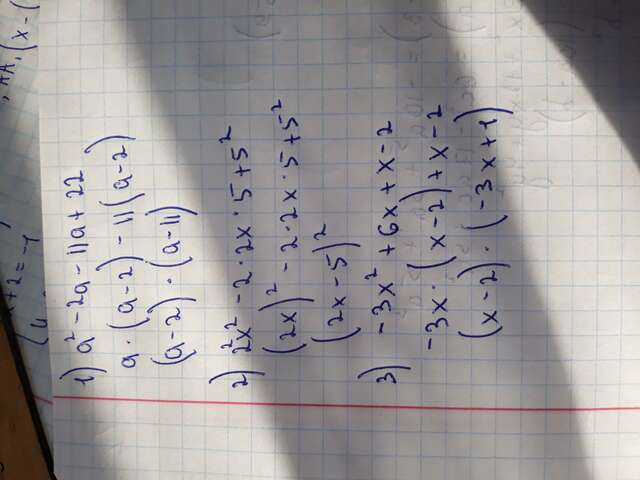 1) a² - 2a - 11a + 22
a · (a-2) - 11(a-2)
(a-2) · (a-11)
2) 2²x² - 2 · 2x · 5 + 5²
(2x)² - 2 · 2x · 5 + 5²
(2x-5)²
3) -3x² + 6x + x - 2
-3x · (x-2) + x - 2
(x-2) · (-3x+1)